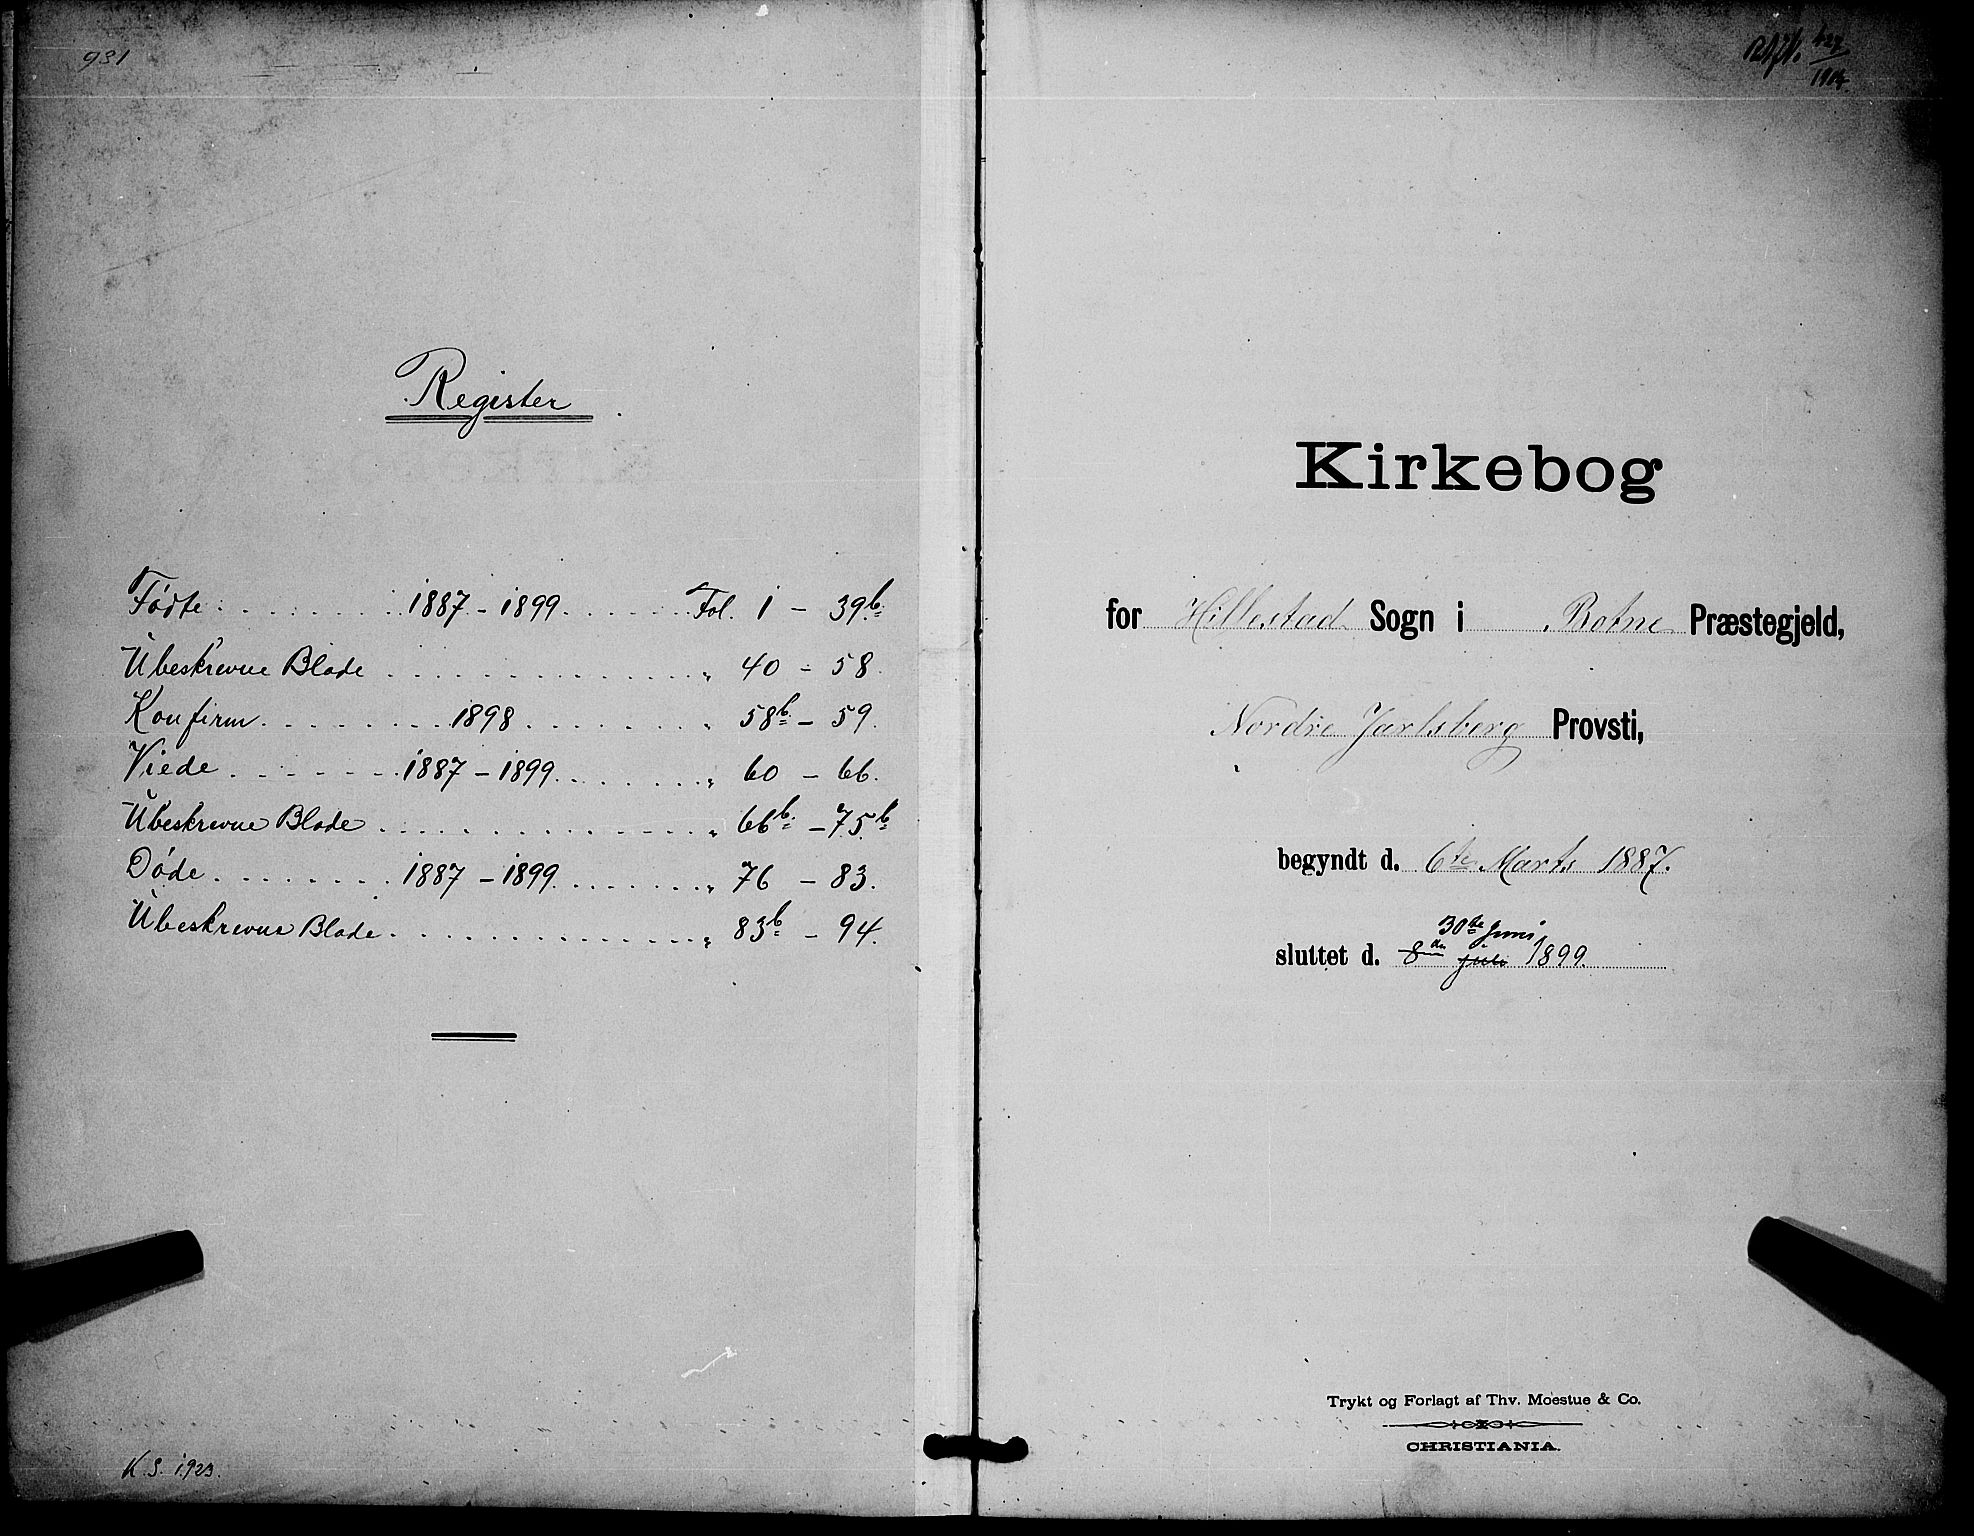 931
Register
Fødte 1887 - 1899 Fol. 1 - 39b.
Ubeskrevne Blade " 40 - 58.
Konfirm. 1898 " 58b - 59.
Viede 1887 - 1899 " 60 - 66.
Ubeskrevne Blade " 66b - 75b
Døde 1887 - 1899 " 76 - 83.
Ubeskrevne Blade " 83b - 94.
K. S. 1923.
1914.
Kirkebog
for Hillestad Sogn i Botne Præstegjeld,
Nordre Jarlsberg Provsti,
begyndt d. 6te Marts 1887.
30te Juni
sluttet d. 8de Juli 1899.
Trykt og Forlagt af Thv. Moestue & Co.
CHRISTIANIA.